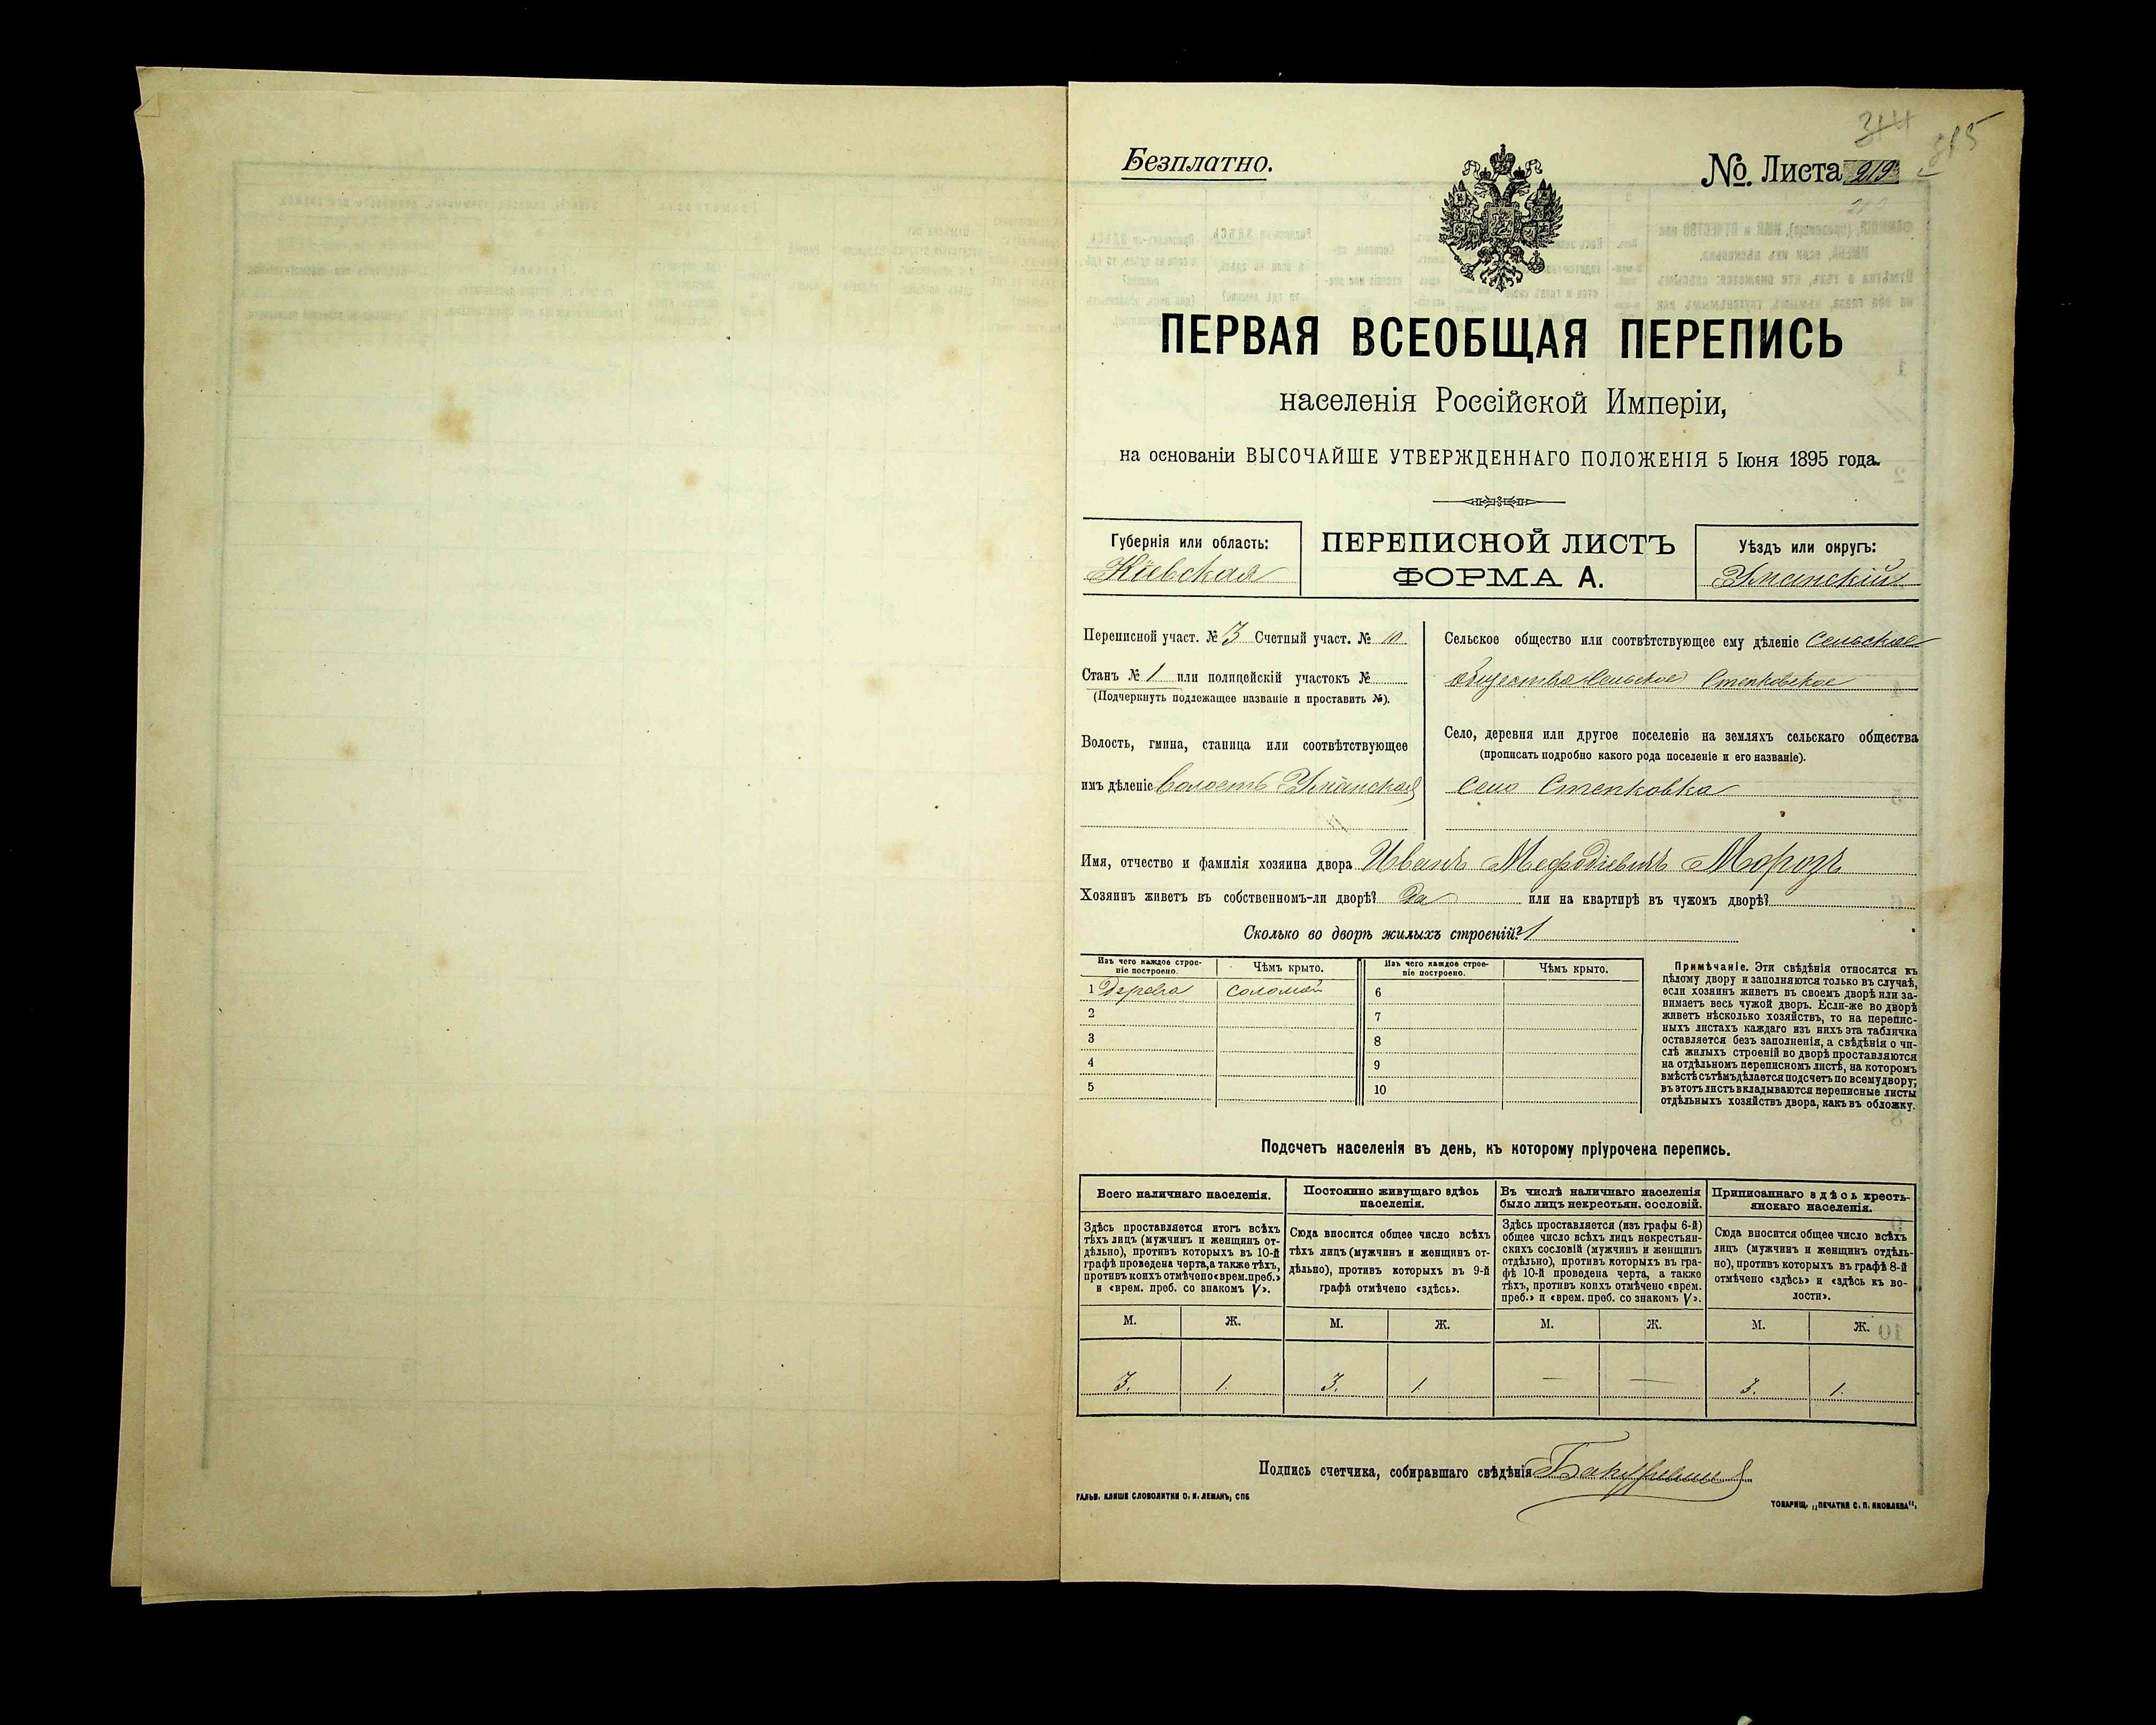 314 315
Безплатно.
№. Листа 219
ПЕРВАЯ ВСЕОБЩАЯ ПЕРЕПИСЬ
населенія Россійской Имперіи,
на основаніи ВЫСОЧАЙШЕ УТВЕРЖДЕННАГО ПОЛОЖЕНІЯ 5 Іюня 1895 года.
Губернія или область:
Кіевская
ПЕРЕПИСНОЙ ЛИСТЪ
ФОРМА А.
Уѣздъ или округъ:
Уманскій
Переписной участ. № 3 Счетный участ. № 10
Станъ № 1 или полицейскій участокъ №
(Подчеркнуть подлежащее названіе и проставить №).
Волость, гмина, станица или соотвѣтствующее
имъ дѣленіе волость Уманская
Сельское общество или соотвѣтствующее ему дѣленіе Сельское
общество Сельское Степковское
Село, деревня или другое поселеніе на земляхъ сельскаго общества
(прописать подробно какого рода поселеніе и его названіе).
село Степковка
Имя, отчество и фамилія хозяина двора Иванъ Мефодіевичъ Морозъ
Хозяинъ живетъ въ собственномъ-ли дворѣ? Да или на квартирѣ въ чужомъ дворѣ?
Сколько во дворѣ жилыхъ строеній? 1
Изъ чего каждое строе-
ніе построено.
Чѣмъ крыто.
Изъ чего каждое строе-
ніе построено.
Чѣмъ крыто.
1 Дерева соломой 6
2 7
3 8
4 9
5 10
Примѣчаніе. Эти свѣдѣнія относятся къ
цѣлому двору и заполняются только въ случаѣ,
если хозяинъ живетъ въ своемъ дворѣ или за-
нимаетъ весь чужой дворъ. Если-же во дворѣ
живетъ нѣсколько хозяйствъ, то на перепис-
ныхъ листахъ каждаго изъ нихъ эта табличка
оставляется безъ заполненія, а свѣдѣнія о чи-
слѣ жилыхъ строеній во дворѣ проставляются
на отдѣльномъ переписномъ листѣ, на которомъ
вмѣстѣ съ тѣмъ дѣлается подсчетъ по всему двору;
въ этотъ листъ вкладываются переписные листы
отдѣльныхъ хозяйствъ двора, какъ въ обложку.
Подсчетъ населенія въ день, къ которому пріурочена перепись.
Всего наличнаго населенія.
Здѣсь проставляется итогъ всѣхъ
тѣхъ лицъ (мужчинъ и женщинъ от-
дѣльно), противъ которыхъ въ 10-й
графѣ проведена черта, а также тѣхъ,
противъ коихъ отмѣчено «врем. преб.»
и «врем. преб. со знакомъ V».
Постоянно живущаго здѣсь
населенія.
Сюда вносится общее число всѣхъ
тѣхъ лицъ (мужчинъ и женщинъ от-
дѣльно), противъ которыхъ въ 9-й
графѣ отмѣчено «здѣсь».
Въ числѣ наличнаго населенія
было лицъ некрестьян. сословій.
Здѣсь проставляется (изъ графы 6-й)
общее число всѣхъ лицъ некрестьян-
скихъ сословій (мужчинъ и женщинъ
отдѣльно), противъ которыхъ въ гра-
фѣ 10-й проведена черта, а также
тѣхъ, противъ коихъ отмѣчено «врем.
преб.» и «врем. преб. со знакомъ V».
Приписаннаго здѣсь кресть-
янскаго населенія.
Сюда вносится общее число всѣхъ
лицъ (мужчинъ и женщинъ отдѣль-
но), противъ которыхъ въ графѣ 8-й
отмѣчено «здѣсь» и «здѣсь къ во-
лости».
М. Ж. М. Ж. М. Ж. М. Ж.
3. 1. 3. 1. — — 3. 1.
Подпись счетчика, собиравшаго свѣдѣнія
ГАЛЬВ. КЛИШЕ СЛОВОЛИТНИ О. И. ЛЕМАНЪ, СПБ
ТОВАРИЩ. „ПЕЧАТНЯ С. П. ЯКОВЛЕВА“.